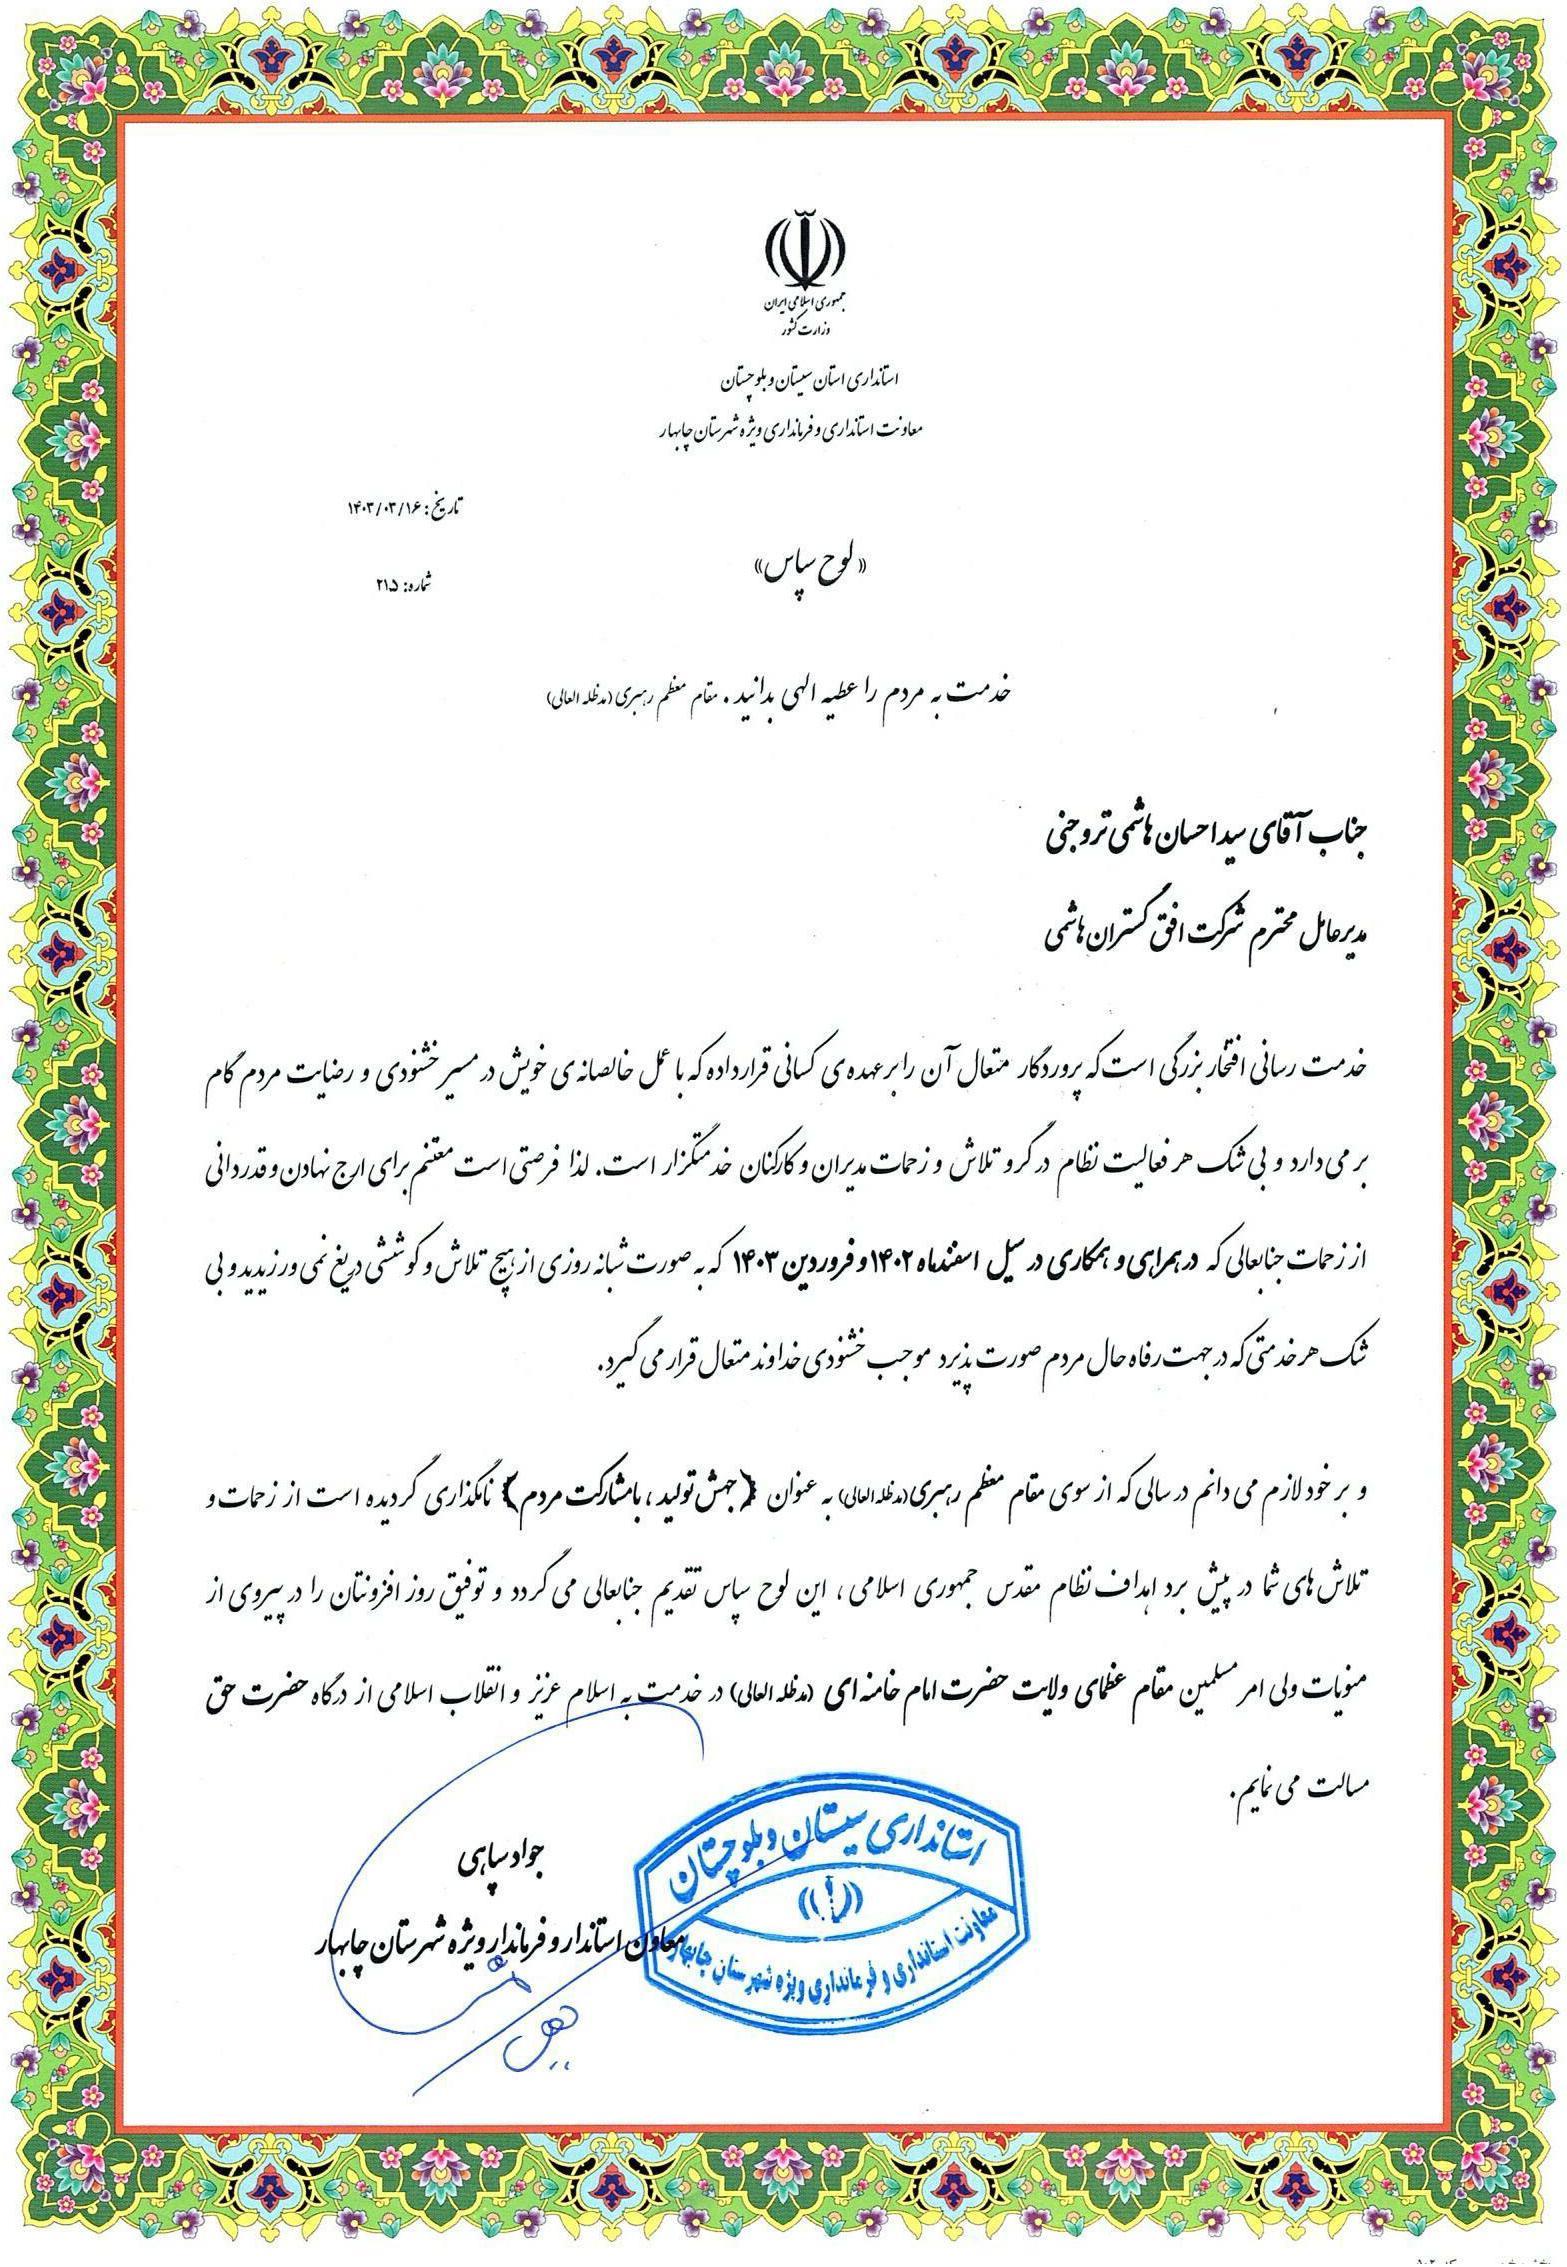 جمهوری اسلامی ایران
وزارت کشور
استانداری استان سیستان و بلوچستان
معاونت استانداری و فرمانداری ویژه شهرستان چابهار
تاریخ: ۱۴۰۳/۰۳/۱۶
«لوح سپاس»
شماره: ۲۱۵
خدمت به مردم را عطیه الهی بدانید. مقام معظم رهبری (مدظله العالی)
جناب آقای سید احسان هاشمی تروجنی
مدیرعامل محترم شرکت افق گستران هاشمی
خدمت رسانی افتخار بزرگی است که پروردگار متعال آن را بر عهده ی کسانی قرار داده که با عمل خالصانه ی خویش در مسیر خشنودی و رضایت مردم گام
بر می دارد و بی شک هر فعالیت نظام در گرو تلاش و زحمات مدیران و کارکنان خدمتگزار است. لذا فرصتی است مغتنم برای ارج نهادن و قدردانی
از زحمات جنابعالی که در همراهی و همکاری در سیل اسفندماه ۱۴۰۲ و فروردین ۱۴۰۳ که به صورت شبانه روزی از هیچ تلاش و کوششی دریغ نمی ورزیدید و بی
شک هر خدمتی که در جهت رفاه حال مردم صورت پذیرد موجب خشنودی خداوند متعال قرار می گیرد.
و بر خود لازم می دانم در سالی که از سوی مقام معظم رهبری (مدظله العالی) به عنوان {جهش تولید، با مشارکت مردم} نامگذاری گردیده است از زحمات و
تلاش های شما در پیش برد اهداف نظام مقدس جمهوری اسلامی، این لوح سپاس تقدیم جنابعالی می گردد و توفیق روز افزونتان را در پیروی از
منویات ولی امر مسلمین مقام عظمای ولایت حضرت امام خامنه ای (مدظله العالی) در خدمت به اسلام عزیز و انقلاب اسلامی از درگاه حضرت حق
مسالت می نمایم.
جواد سپاهی
معاون استاندار و فرماندار ویژه شهرستان چابهار
استانداری سیستان و بلوچستان
معاونت استانداری و فرمانداری ویژه شهرستان چابهار